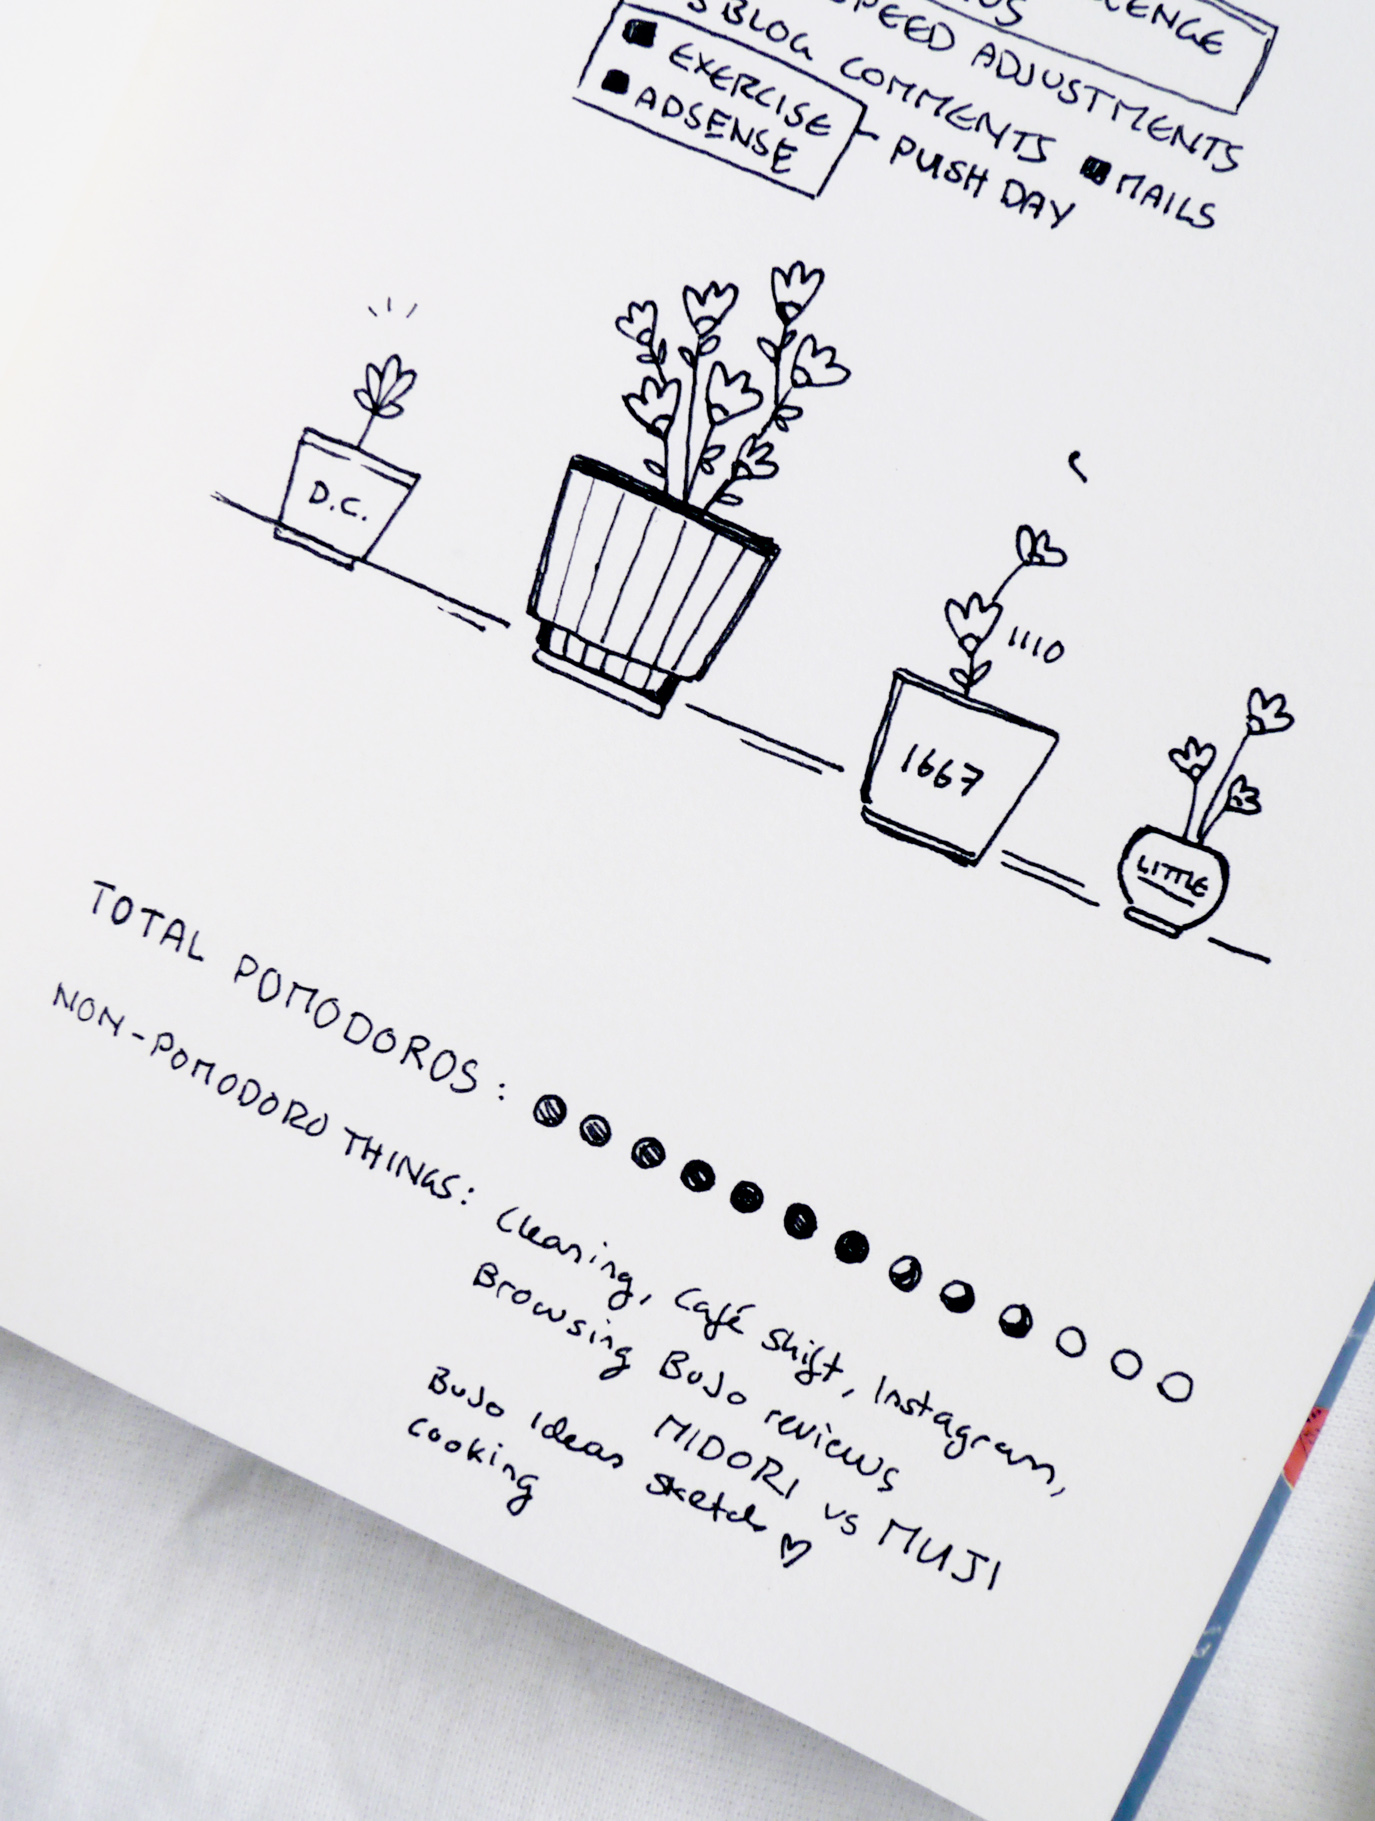 SPEED ADJUSTMENTS
BLOG COMMENTS ■ MAILS
■ EXERCISE - PUSH DAY
■ ADSENSE
D.C.
1110
1667
LITTLE
TOTAL POMODOROS:
NON-POMODORO THINGS: Cleaning, Café shift, Instagram,
Browsing BuJo reviews
MIDORI vs MUJI
BuJo ideas sketch ♡
cooking